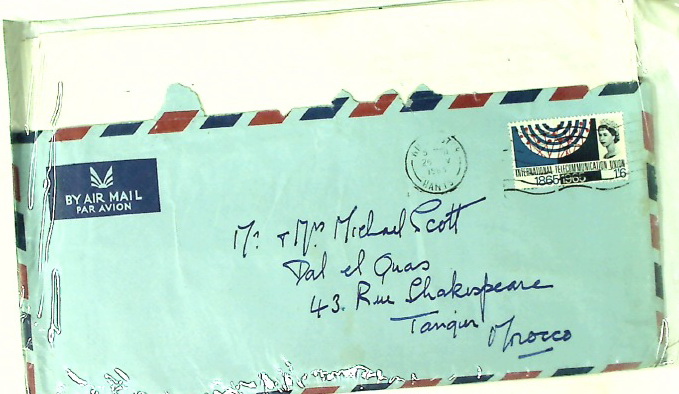 BY AIR MAIL
PAR AVION
HANTS
INTERNATIONAL TELECOMMUNICATION UNION
1865 1965 1/6
Mr & Mrs Michael Scott
Dal el Quas
43. Rue Shakespeare
Tangier
Morocco